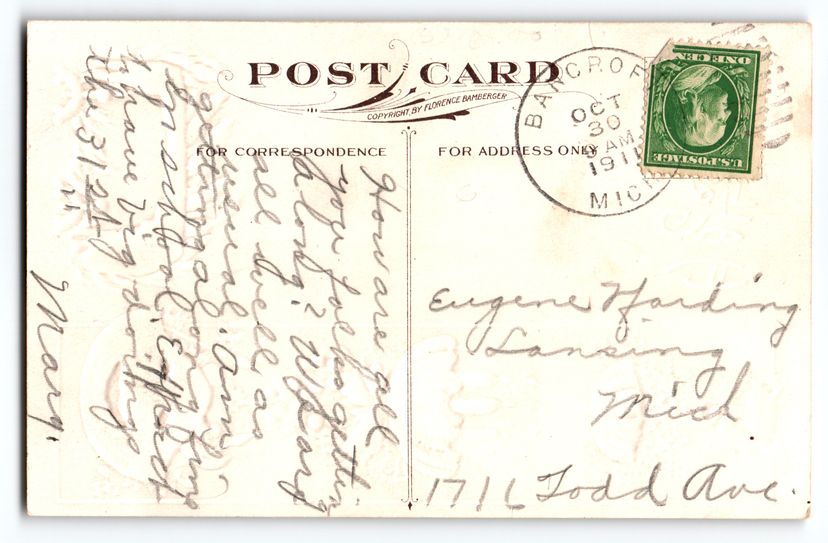 POST CARD
COPYRIGHT, BY FLORENCE BAMBERGER
FOR CORRESPONDENCE
FOR ADDRESS ONLY
BANCROFT
OCT
30
AM
1911
MICH
U.S. POSTAGE
ONE CEN
How are all
you folks getting
along? We are
all well as
usual. Am
getting along fine
in school. Expect
to have big doings
the 31st
Mary.
Eugene Harding
Lansing
Mich
1716 Todd Ave.